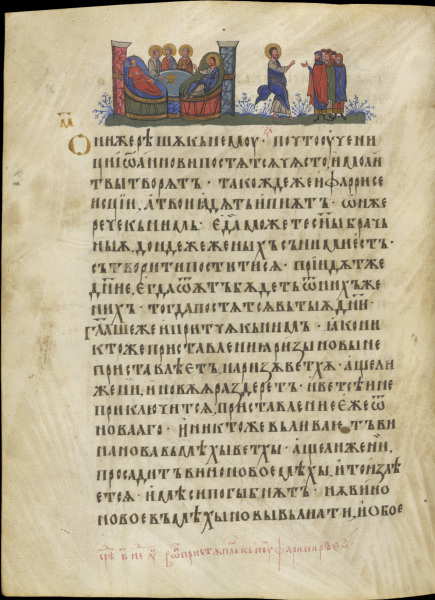 Ѻни же рѣшѫ къ немоу · почто оучени
ци їѡаннови постѧтсѧ чѧсто, и моли
твы творѧтъ · такожде же и фарисе
исции, а твои ꙗдѧтъ и пиѫтъ · ѡн же
рече къ нимъ · еда можете сн҃ы брачь
ныѫ, дондеже женихъ съ ними есть ·
сътворити поститисѧ · прїидѫт же
дн҃ие, егда ѿѧтъ бѫдетъ ѿ них же
нихъ · тогда постѧтсѧ въ тыѫ дн҃и ·
гл҃аше же и притчѫ къ нимъ · ꙗко ни
ктоже приставленїа ризы новы не
приставлѣетъ на ризѫ ветхѫ · аще ли
же ни, и новѫѧ раздеретъ · и ветсѣи не
приключитсѧ приставление еже ѿ
новааго · и никтоже вьливаетъ ви
на нова въ мѣхы ветхы · аще ли же ни,
просадитъ вино новое мѣхы, и то излѣ
етсѧ · и мѣси погыбнѫтъ · нѫ вино
новое въ мѣхы новы вьлиати, и обое